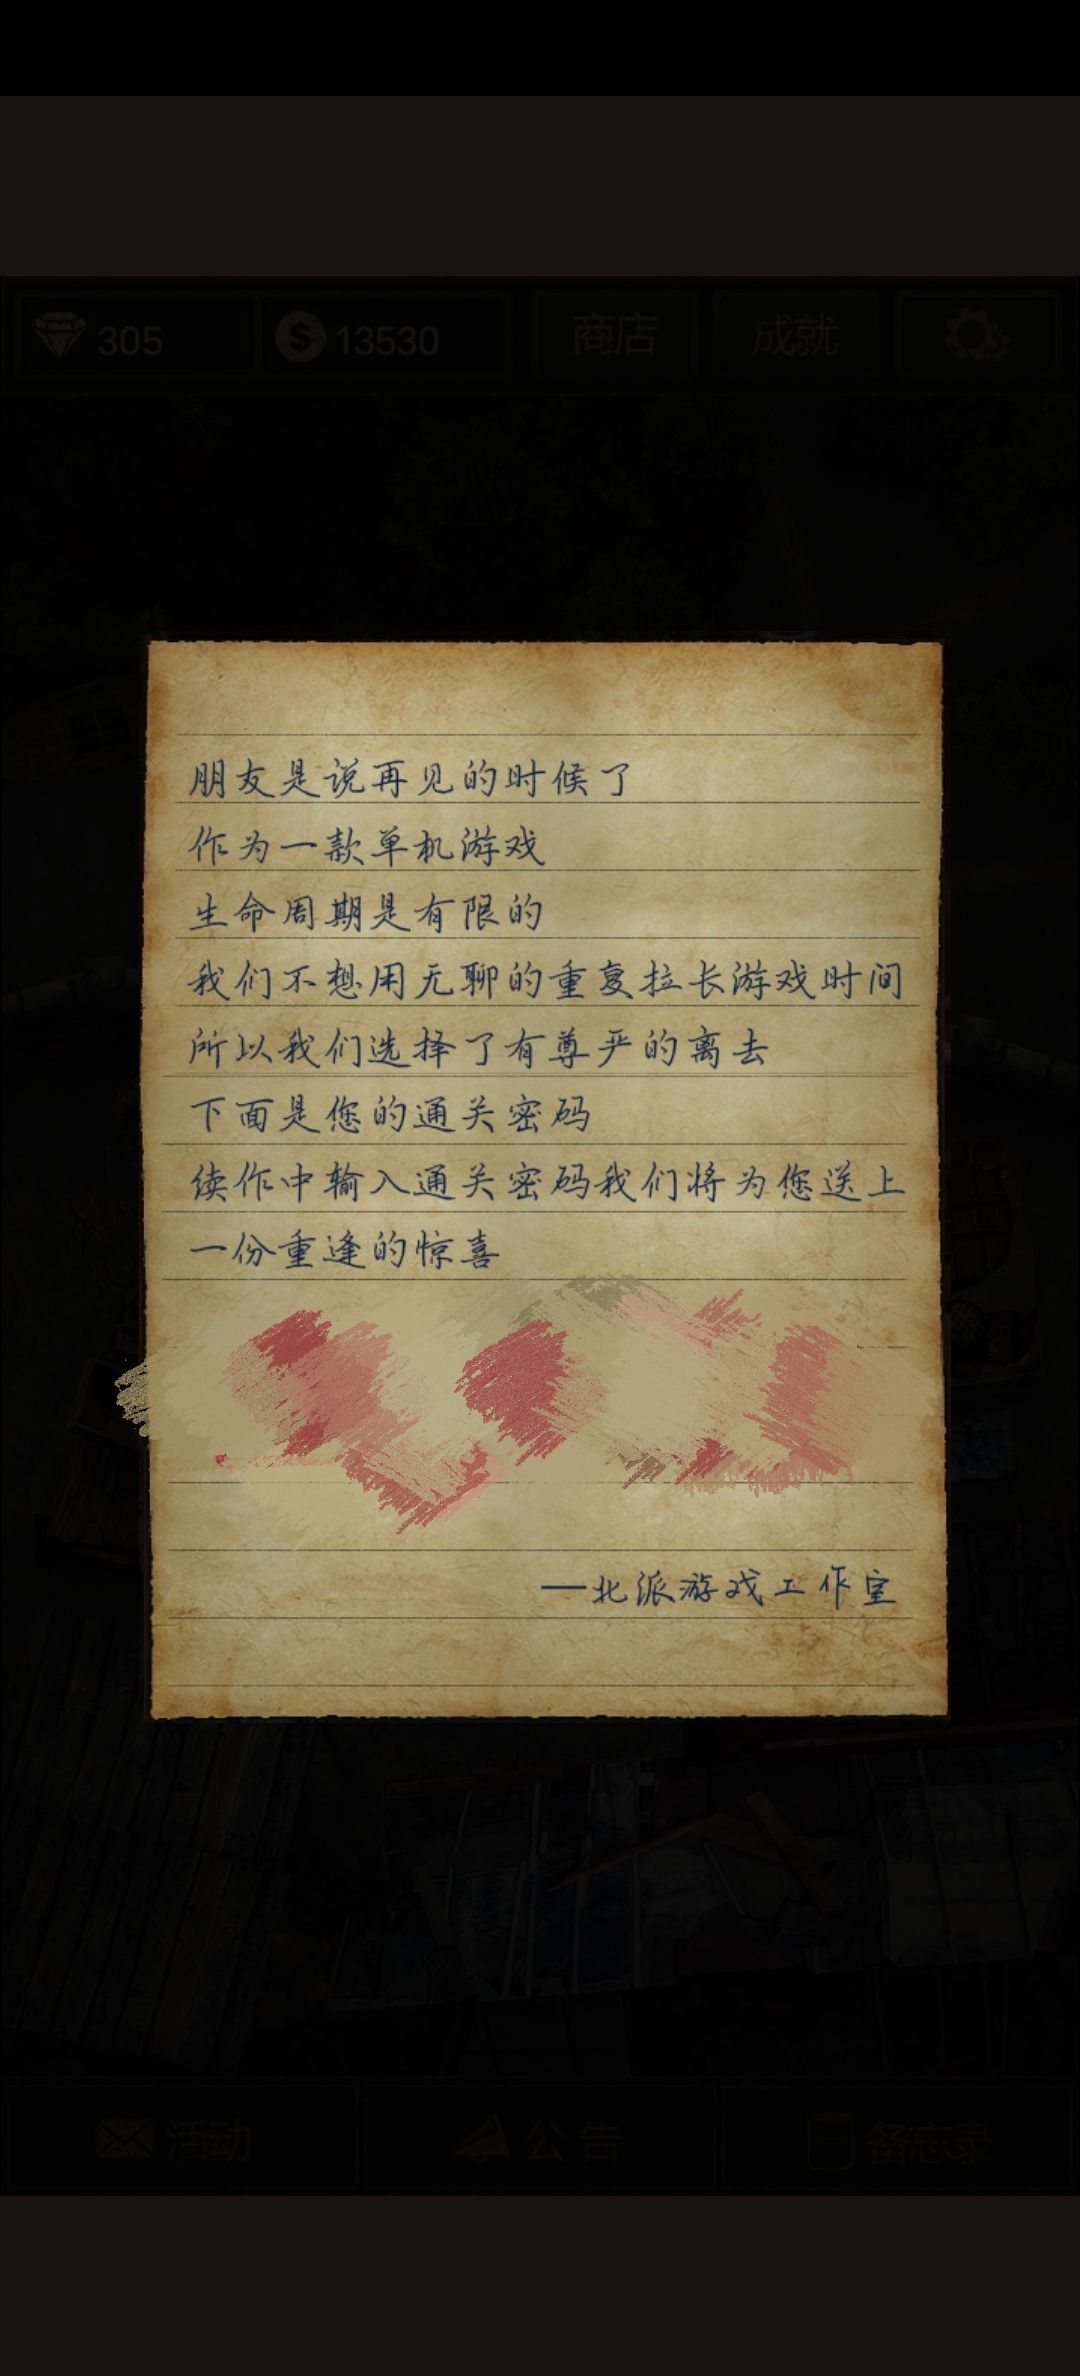 305 13530 商店 成就
朋友是说再见的时候了
作为一款单机游戏
生命周期是有限的
我们不想用无聊的重复拉长游戏时间
所以我们选择了有尊严的离去
下面是您的通关密码
续作中输入通关密码我们将为您送上
一份重逢的惊喜
—北派游戏工作室
活动 公告 备忘录